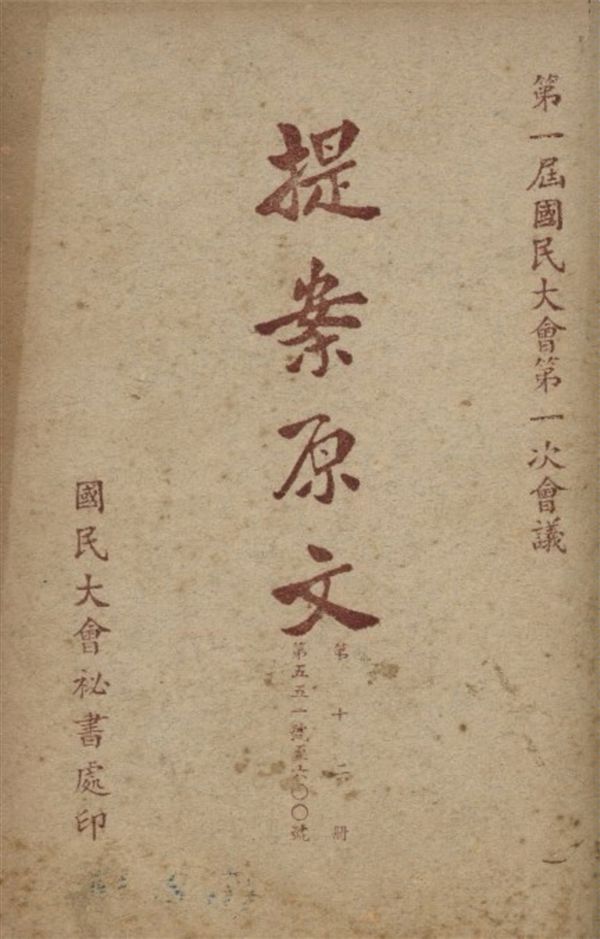 第一屆國民大會第一次會議
提案原文
第十二册
第五五一號至六〇〇號
國民大會祕書處印